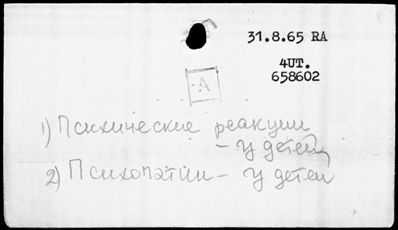 31.8.65 RA
4UT.
658602
A
1) Психические реакции
– у детей
2) Психопатии – у детей